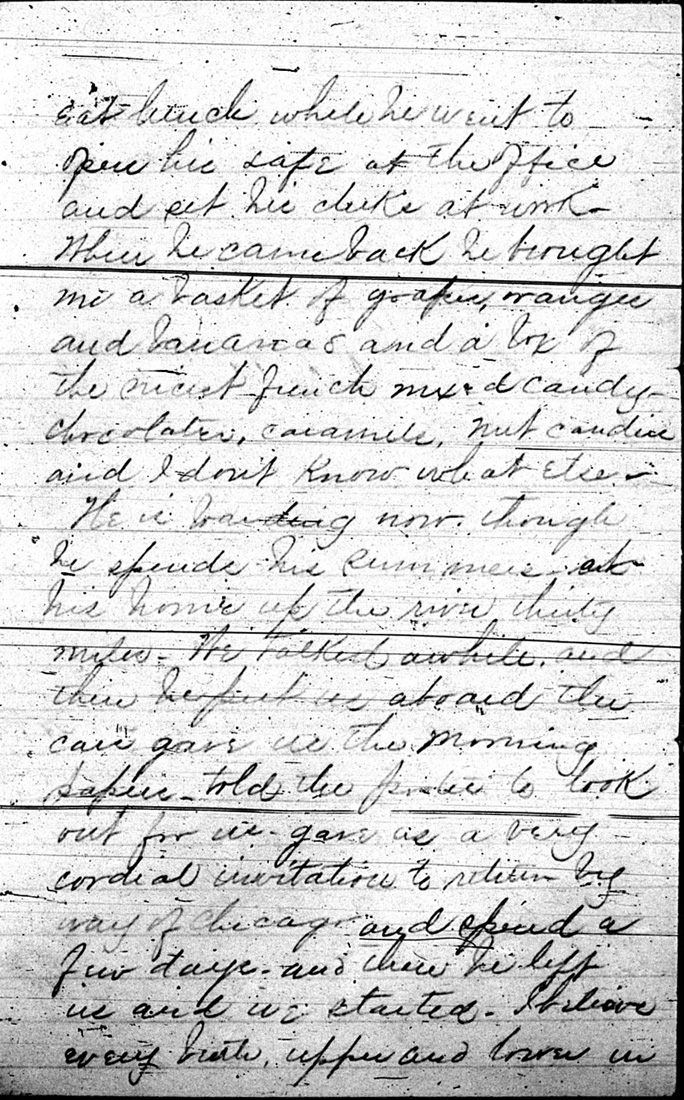 eat lunch while he went to
open his safe at the office
and set his clerks at work -
When he came back he brought
me a basket of grapes, oranges
and bananas and a box of
the nicest french mixed candy -
chocolates, caramels, nut candies
and I don't know what else -
He is boarding now. though
he spends his summers at
his home up the river thirty
miles - We talked awhile, and
then he put us aboard the
cars gave us the morning
papers - told the porter to look
out for us - gave us a very
cordial invitation to return by
way of Chicago and spend a
few days - and there he left
us and we started - I believe
every berth, upper and lower in